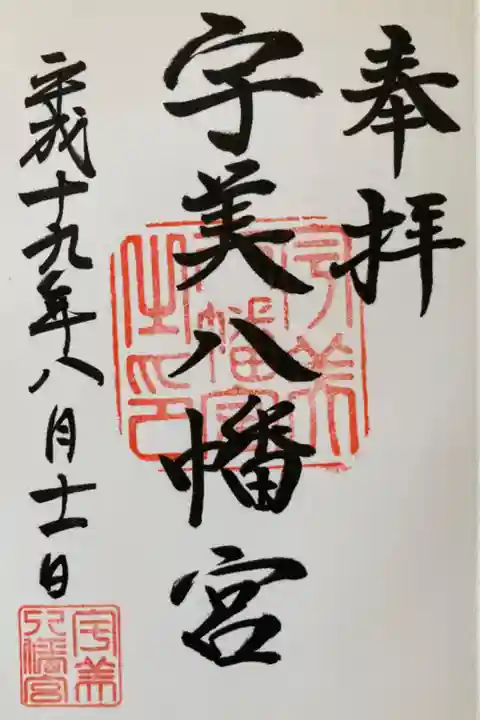 奉拝
宇美八幡宮
平成十九年八月十一日
宇美
八幡宮
之印
宇美
八幡宮